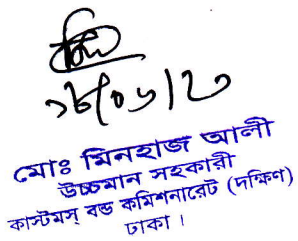 ১৮/০৬/২৩
মোঃ মিনহাজ আলী
উচ্চমান সহকারী
কাস্টমস্ বন্ড কমিশনারেট (দক্ষিণ)
ঢাকা ।